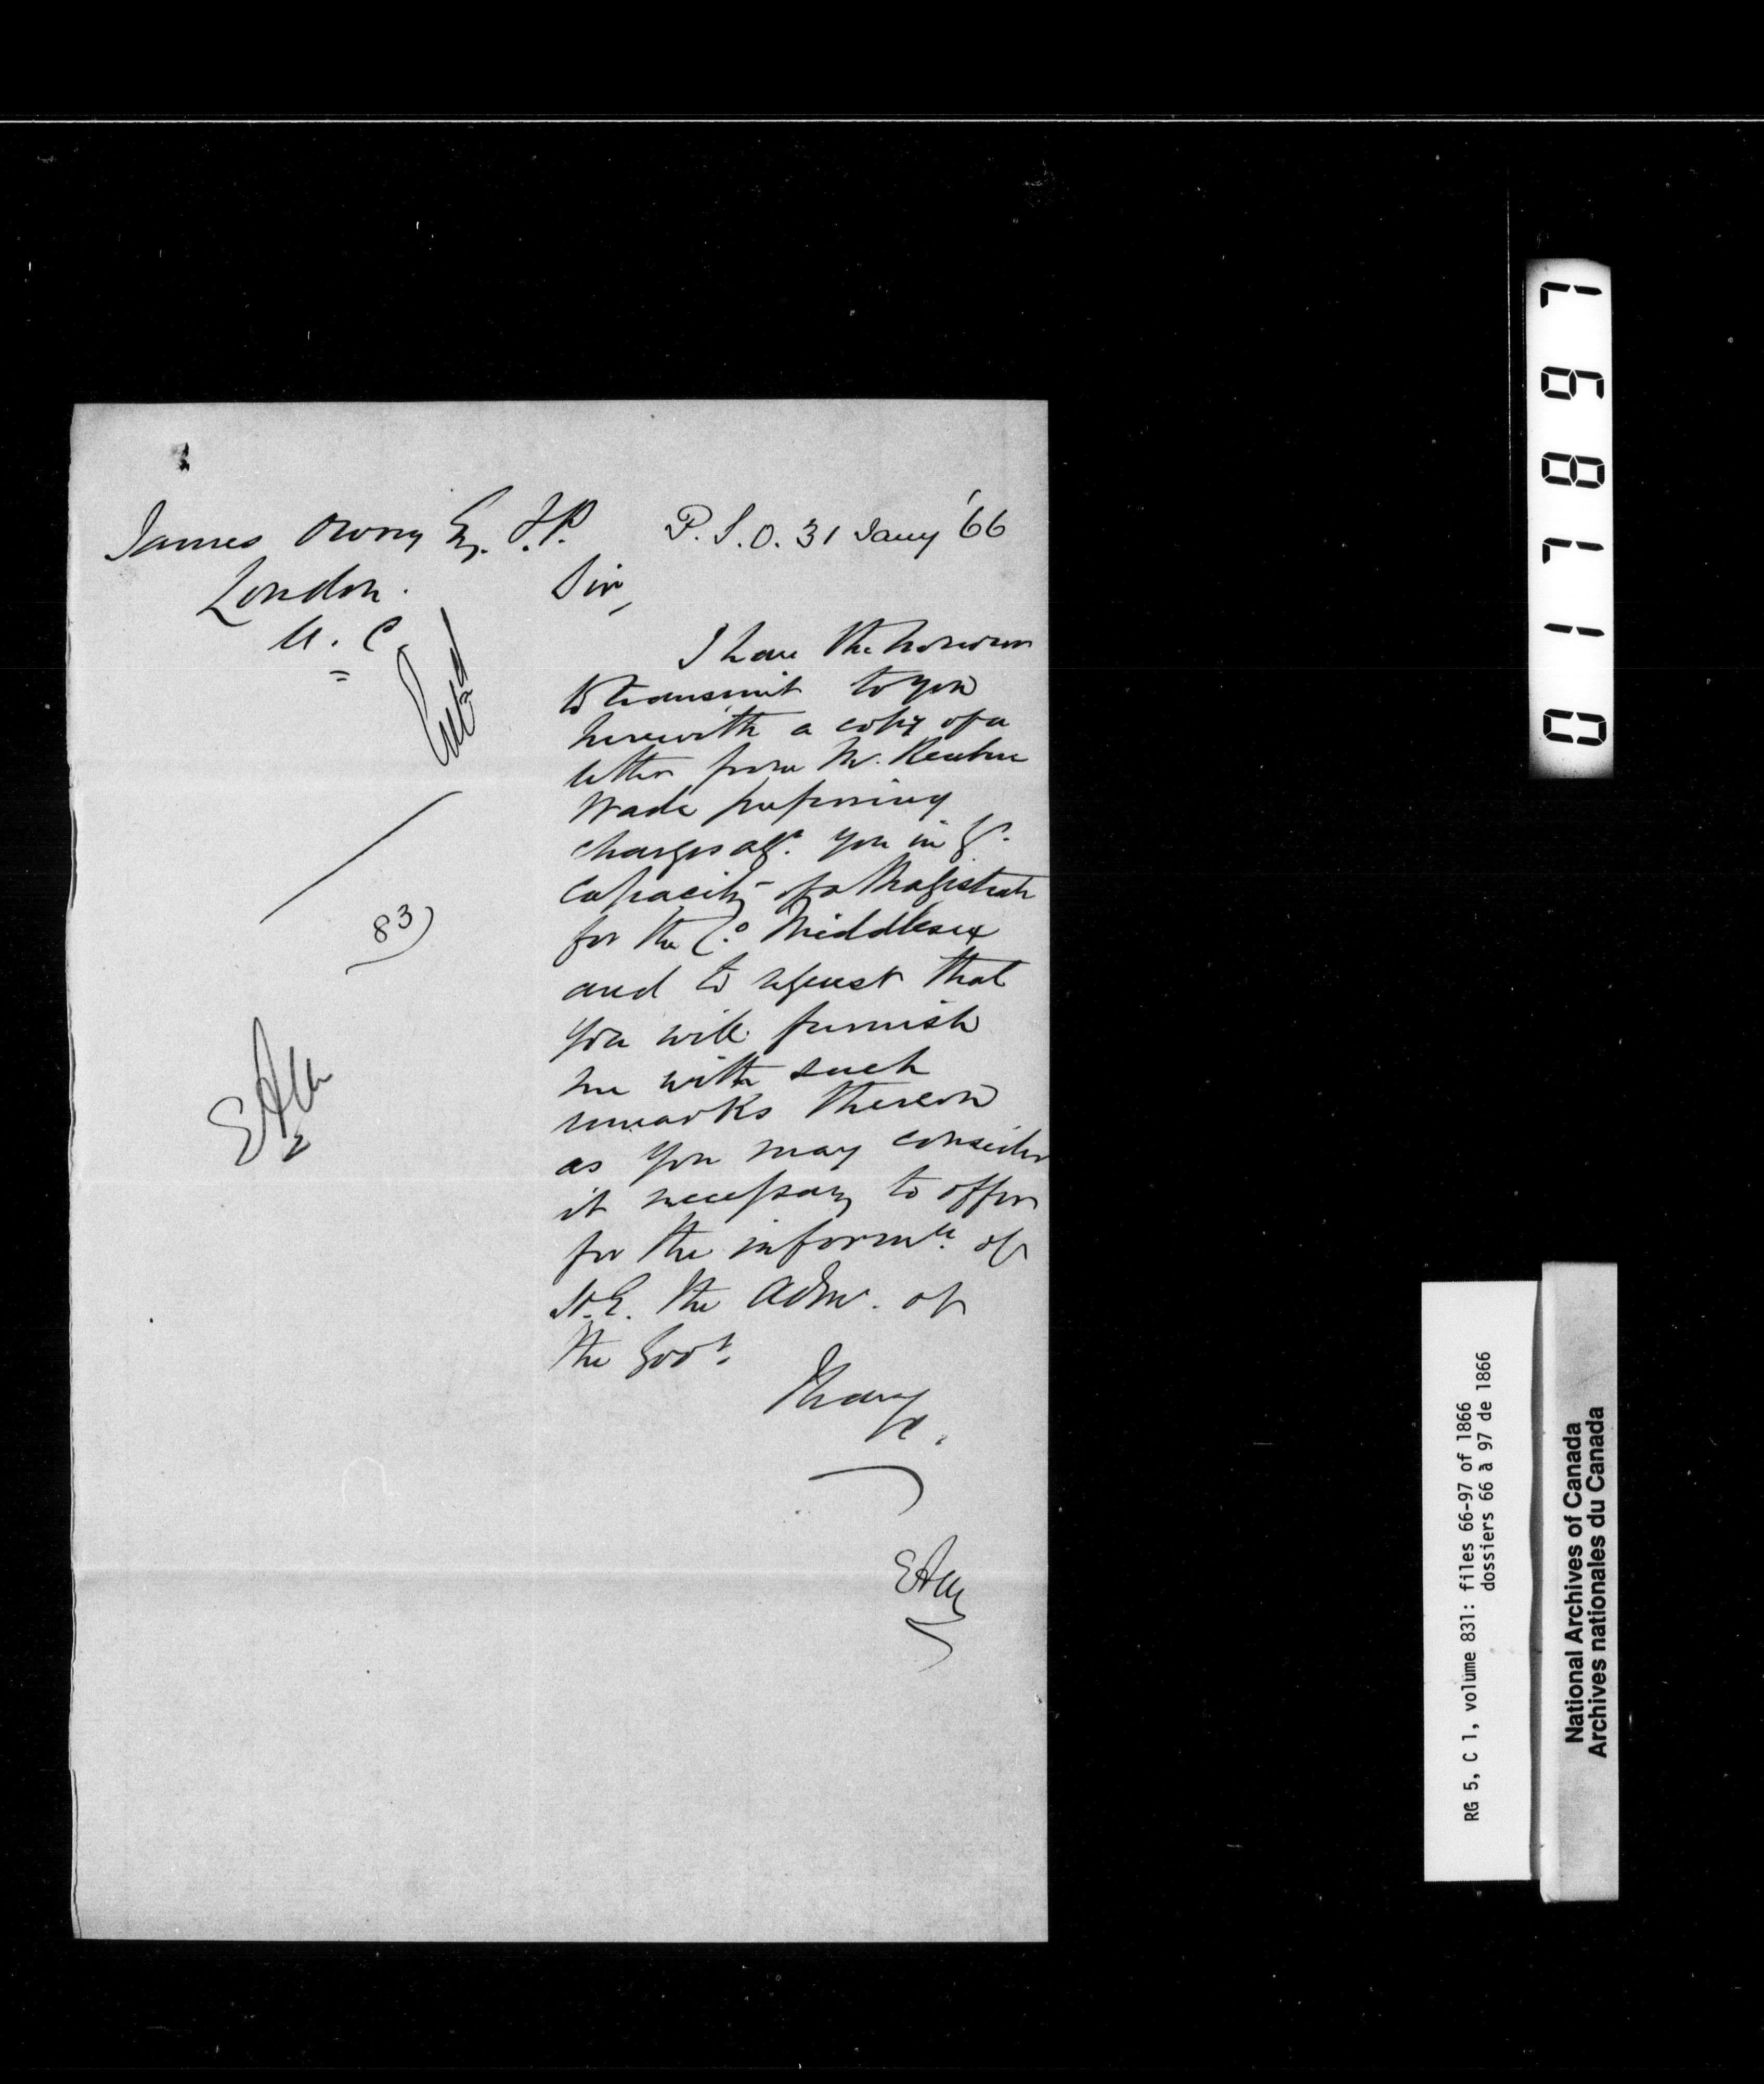 James Owrey Esq. J.P.
London.
U. C.
P. S. O. 31 Jany '66
Sir,
Entd
I have the honour
to transmit to you
herewith a copy of a
letter from Mr. Reuben
Wade preferring
charges agt. you in yr.
capacity of a Magistrate
for the Co. Middlesex
and to request that
you will furnish
me with such
remarks thereon
as you may consider
it necessary to offer
for the informn. of
H.E. the Admr. of
the Govt.
I have
&c.
83
EAM
EAM
017897
RG 5, C 1, volume 831: files 66-97 of 1866
dossiers 66 à 97 de 1866
National Archives of Canada
Archives nationales du Canada